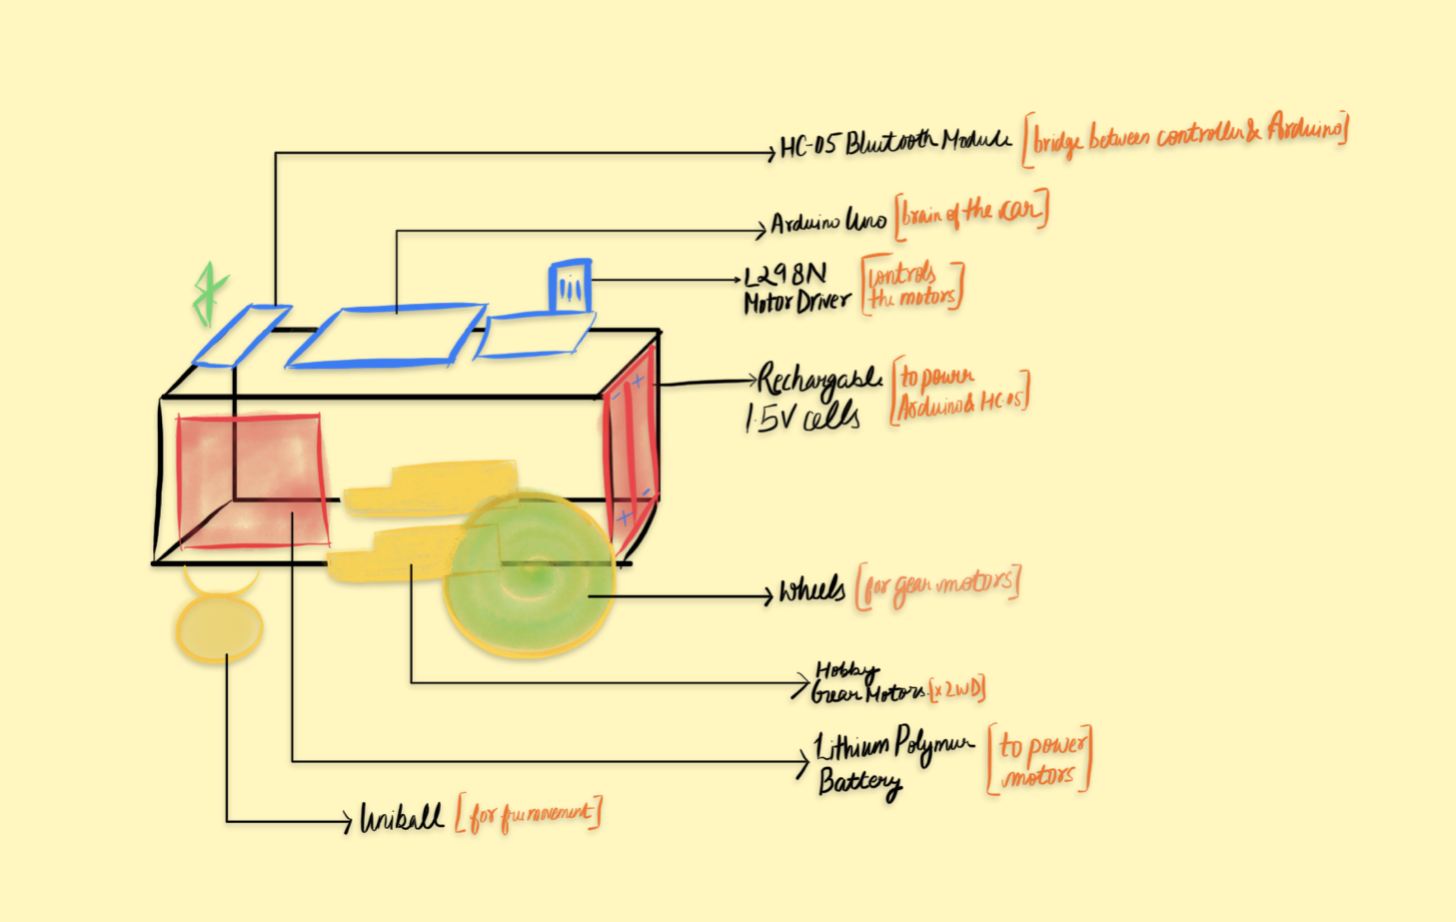 HC-05 Bluetooth Module [bridge between controller & Arduino]
Arduino Uno [brain of the car]
L298N [controls
Motor Driver the motors]
Rechargable [to power
1.5V cells Arduino & HC-05]
Wheels [for gear motors]
Hobby
Gear Motors [x2WD]
Lithium Polymer [to power
Battery motors]
Uniball [for free movement]